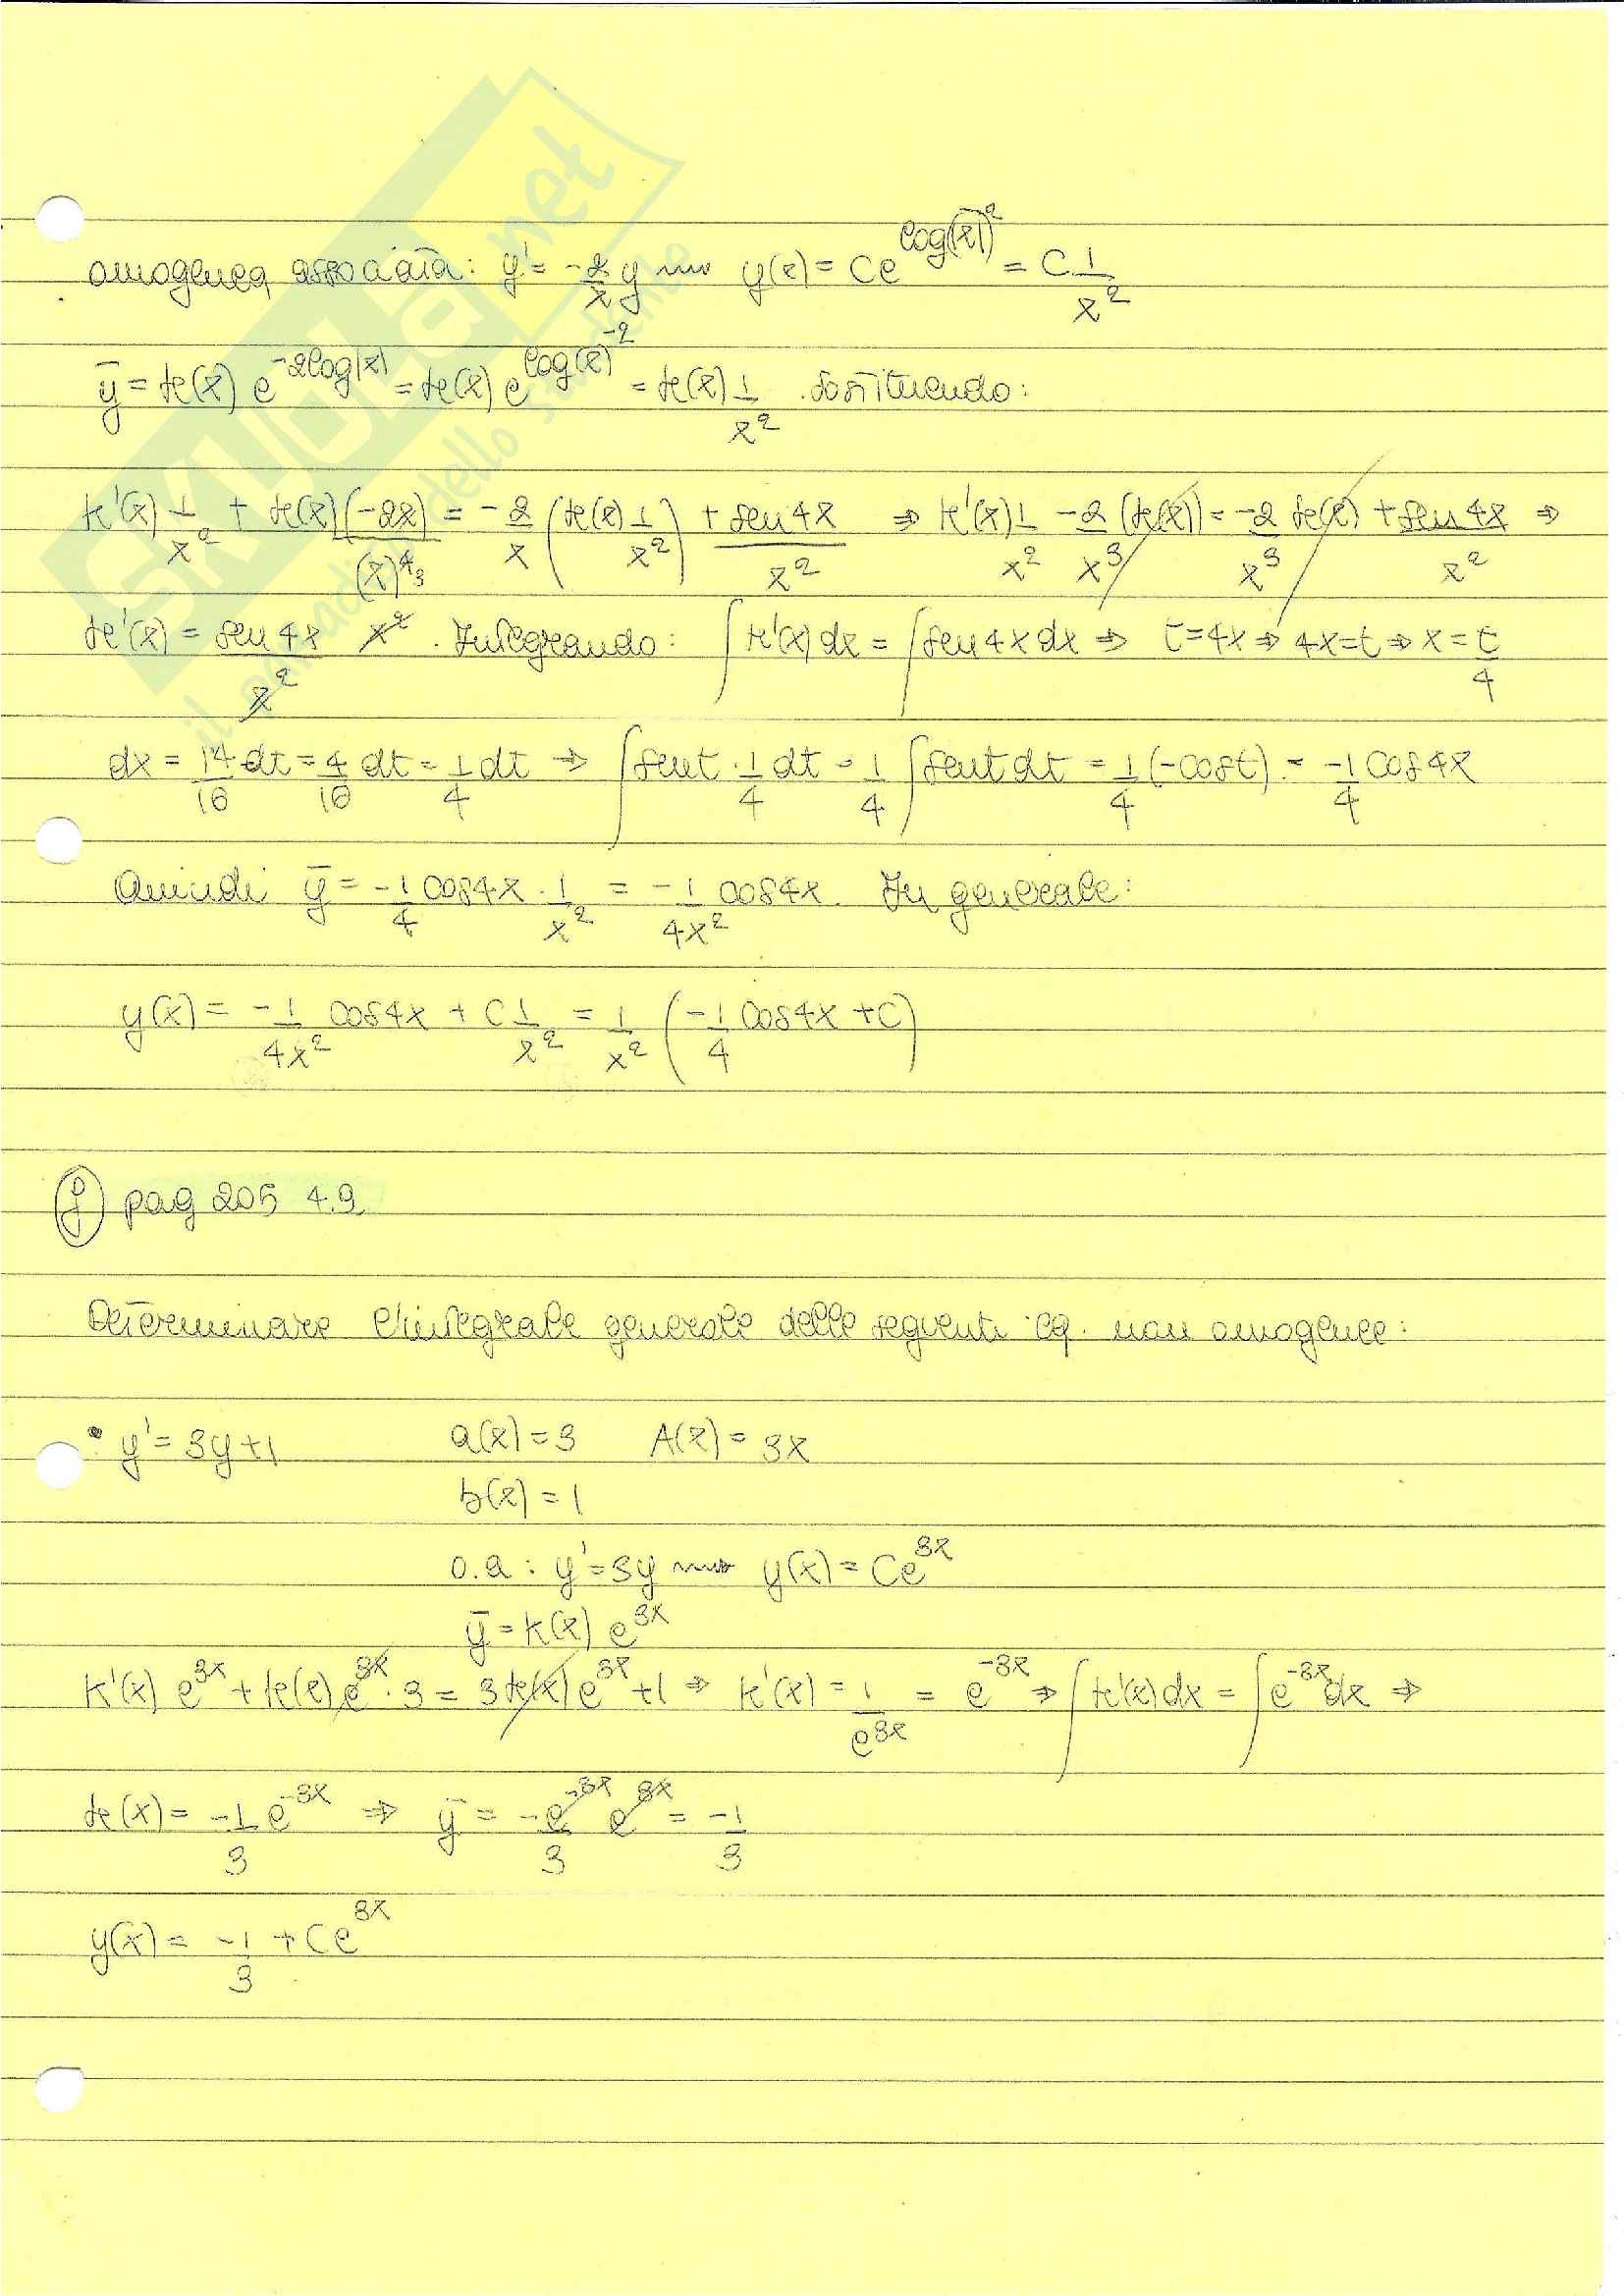 omogenea associata: y' = -2/x y ⇝ y(x) = Ce^(log(|x|)^2) = C 1/x^2
ȳ = k(x) e^(-2log|x|) = k(x) e^(log(x)^-2) = k(x) 1/x^2 . Sostituendo:
k'(x) 1/x^2 + k(x) (-2x)/(x)^4 3 = -2/x (k(x) 1/x^2) + sen4x/x^2 ⇒ k'(x) 1/x^2 - 2/x^3 (k(x)) = -2/x^3 k(x) + sen4x/x^2 ⇒
k'(x) = sen4x/x^2 x^2 . Integrando: ∫k'(x)dx = ∫sen4xdx ⇒ t=4x ⇒ 4x=t ⇒ x = t/4
dx = 1·4/16 dt = 4/16 dt = 1/4 dt ⇒ ∫sent · 1/4 dt = 1/4 ∫sentdt = 1/4 (-cost) = -1/4 cos4x
Quindi ȳ = -1/4 cos4x · 1/x^2 = -1/4x^2 cos4x. In generale:
y(x) = -1/4x^2 cos4x + C 1/x^2 = 1/x^2 (-1/4 cos4x + C)
f pag 205 4.9
Determinare l'integrale generale delle seguenti eq. non omogenee:
• y' = 3y+1 a(x) = 3 A(x) = 3x
b(x) = 1
o.a : y' = 3y ⇝ y(x) = Ce^3x
ȳ = k(x) e^3x
k'(x) e^3x + k(x) e^3x · 3 = 3k(x) e^3x + 1 ⇒ k'(x) = 1/e^3x = e^-3x ⇒ ∫k'(x)dx = ∫e^-3x dx ⇒
k(x) = -1/3 e^-3x ⇒ ȳ = -e^-3x/3 e^3x = -1/3
y(x) = -1/3 + Ce^3x
SKUOLA.net
il paradiso dello studente